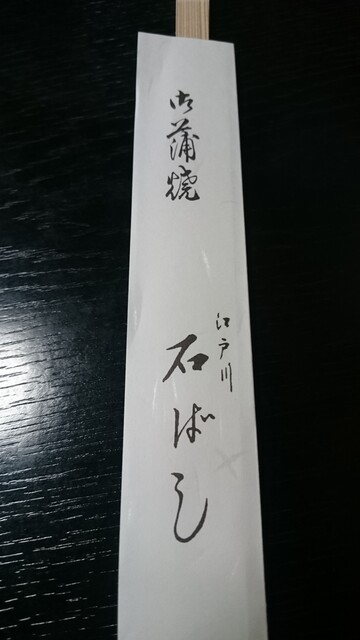 御蒲焼
江戸川
石ばし